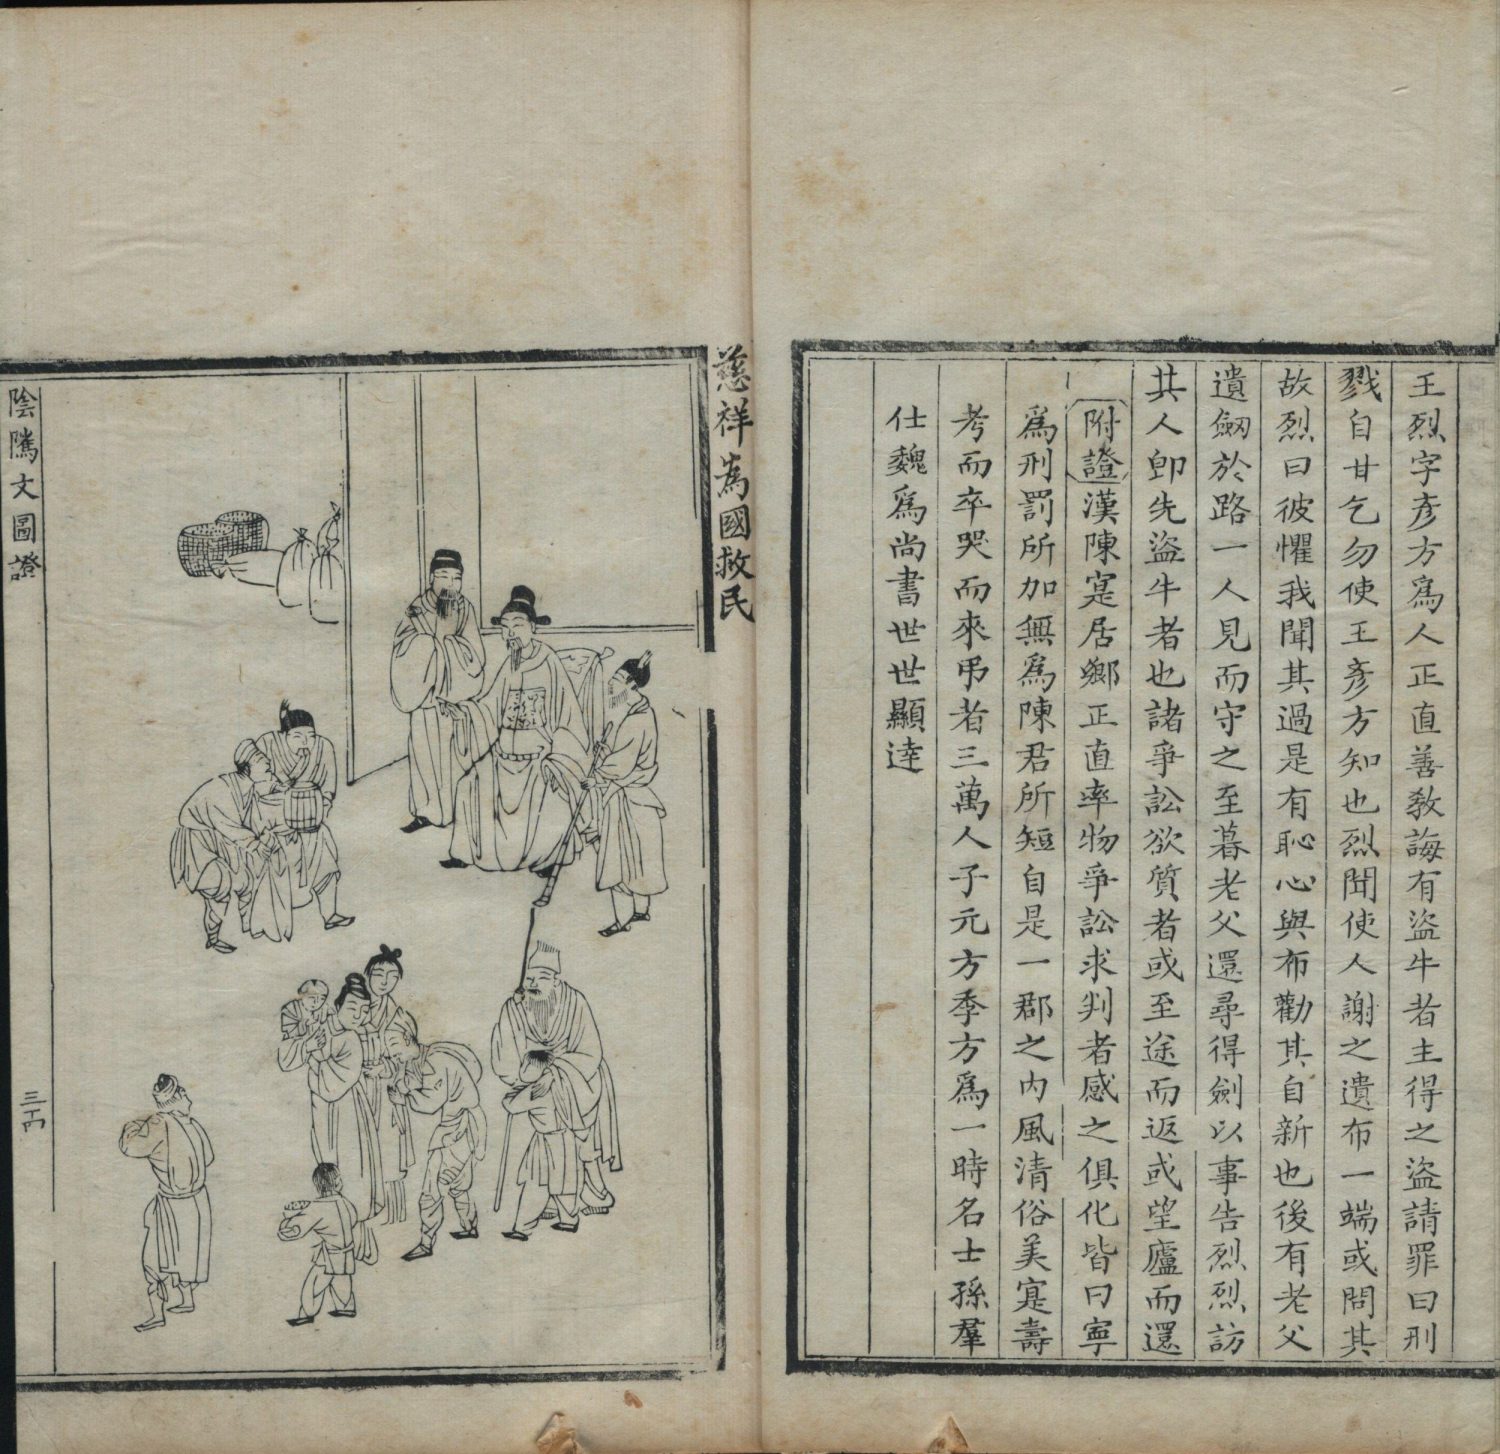 王烈字彥方爲人正直善教誨有盜牛者主得之盜請罪曰刑
戮自甘乞勿使王彥方知也烈聞使人謝之遺布一端或問其
故烈曰彼懼我聞其過是有恥心與布勸其自新也後有老父
遺劒於路一人見而守之至暮老父還尋得劍以事告烈烈訪
其人卽先盜牛者也諸爭訟欲質者或至途而返或望廬而還
附證漢陳寔居鄉正直率物爭訟求判者感之俱化皆曰寧
爲刑罰所加無爲陳君所短自是一郡之内風清俗美寔壽
考而卒哭而來弔者三萬人子元方季方爲一時名士孫羣
仕魏爲尚書世世顯達
慈祥爲國救民
陰騭文圖證